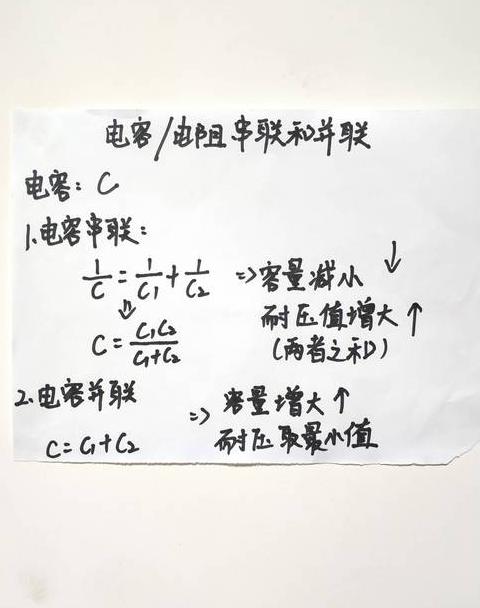 电容/电阻串联和并联
电容: C
1.电容串联:
1/C = 1/C1 + 1/C2 => 容量减小 ↓
⇓ 耐压值增大 ↑
C = C1C2/(C1+C2) (两者之和)
2.电容并联 => 容量增大 ↑
C = C1+C2 耐压取最小值